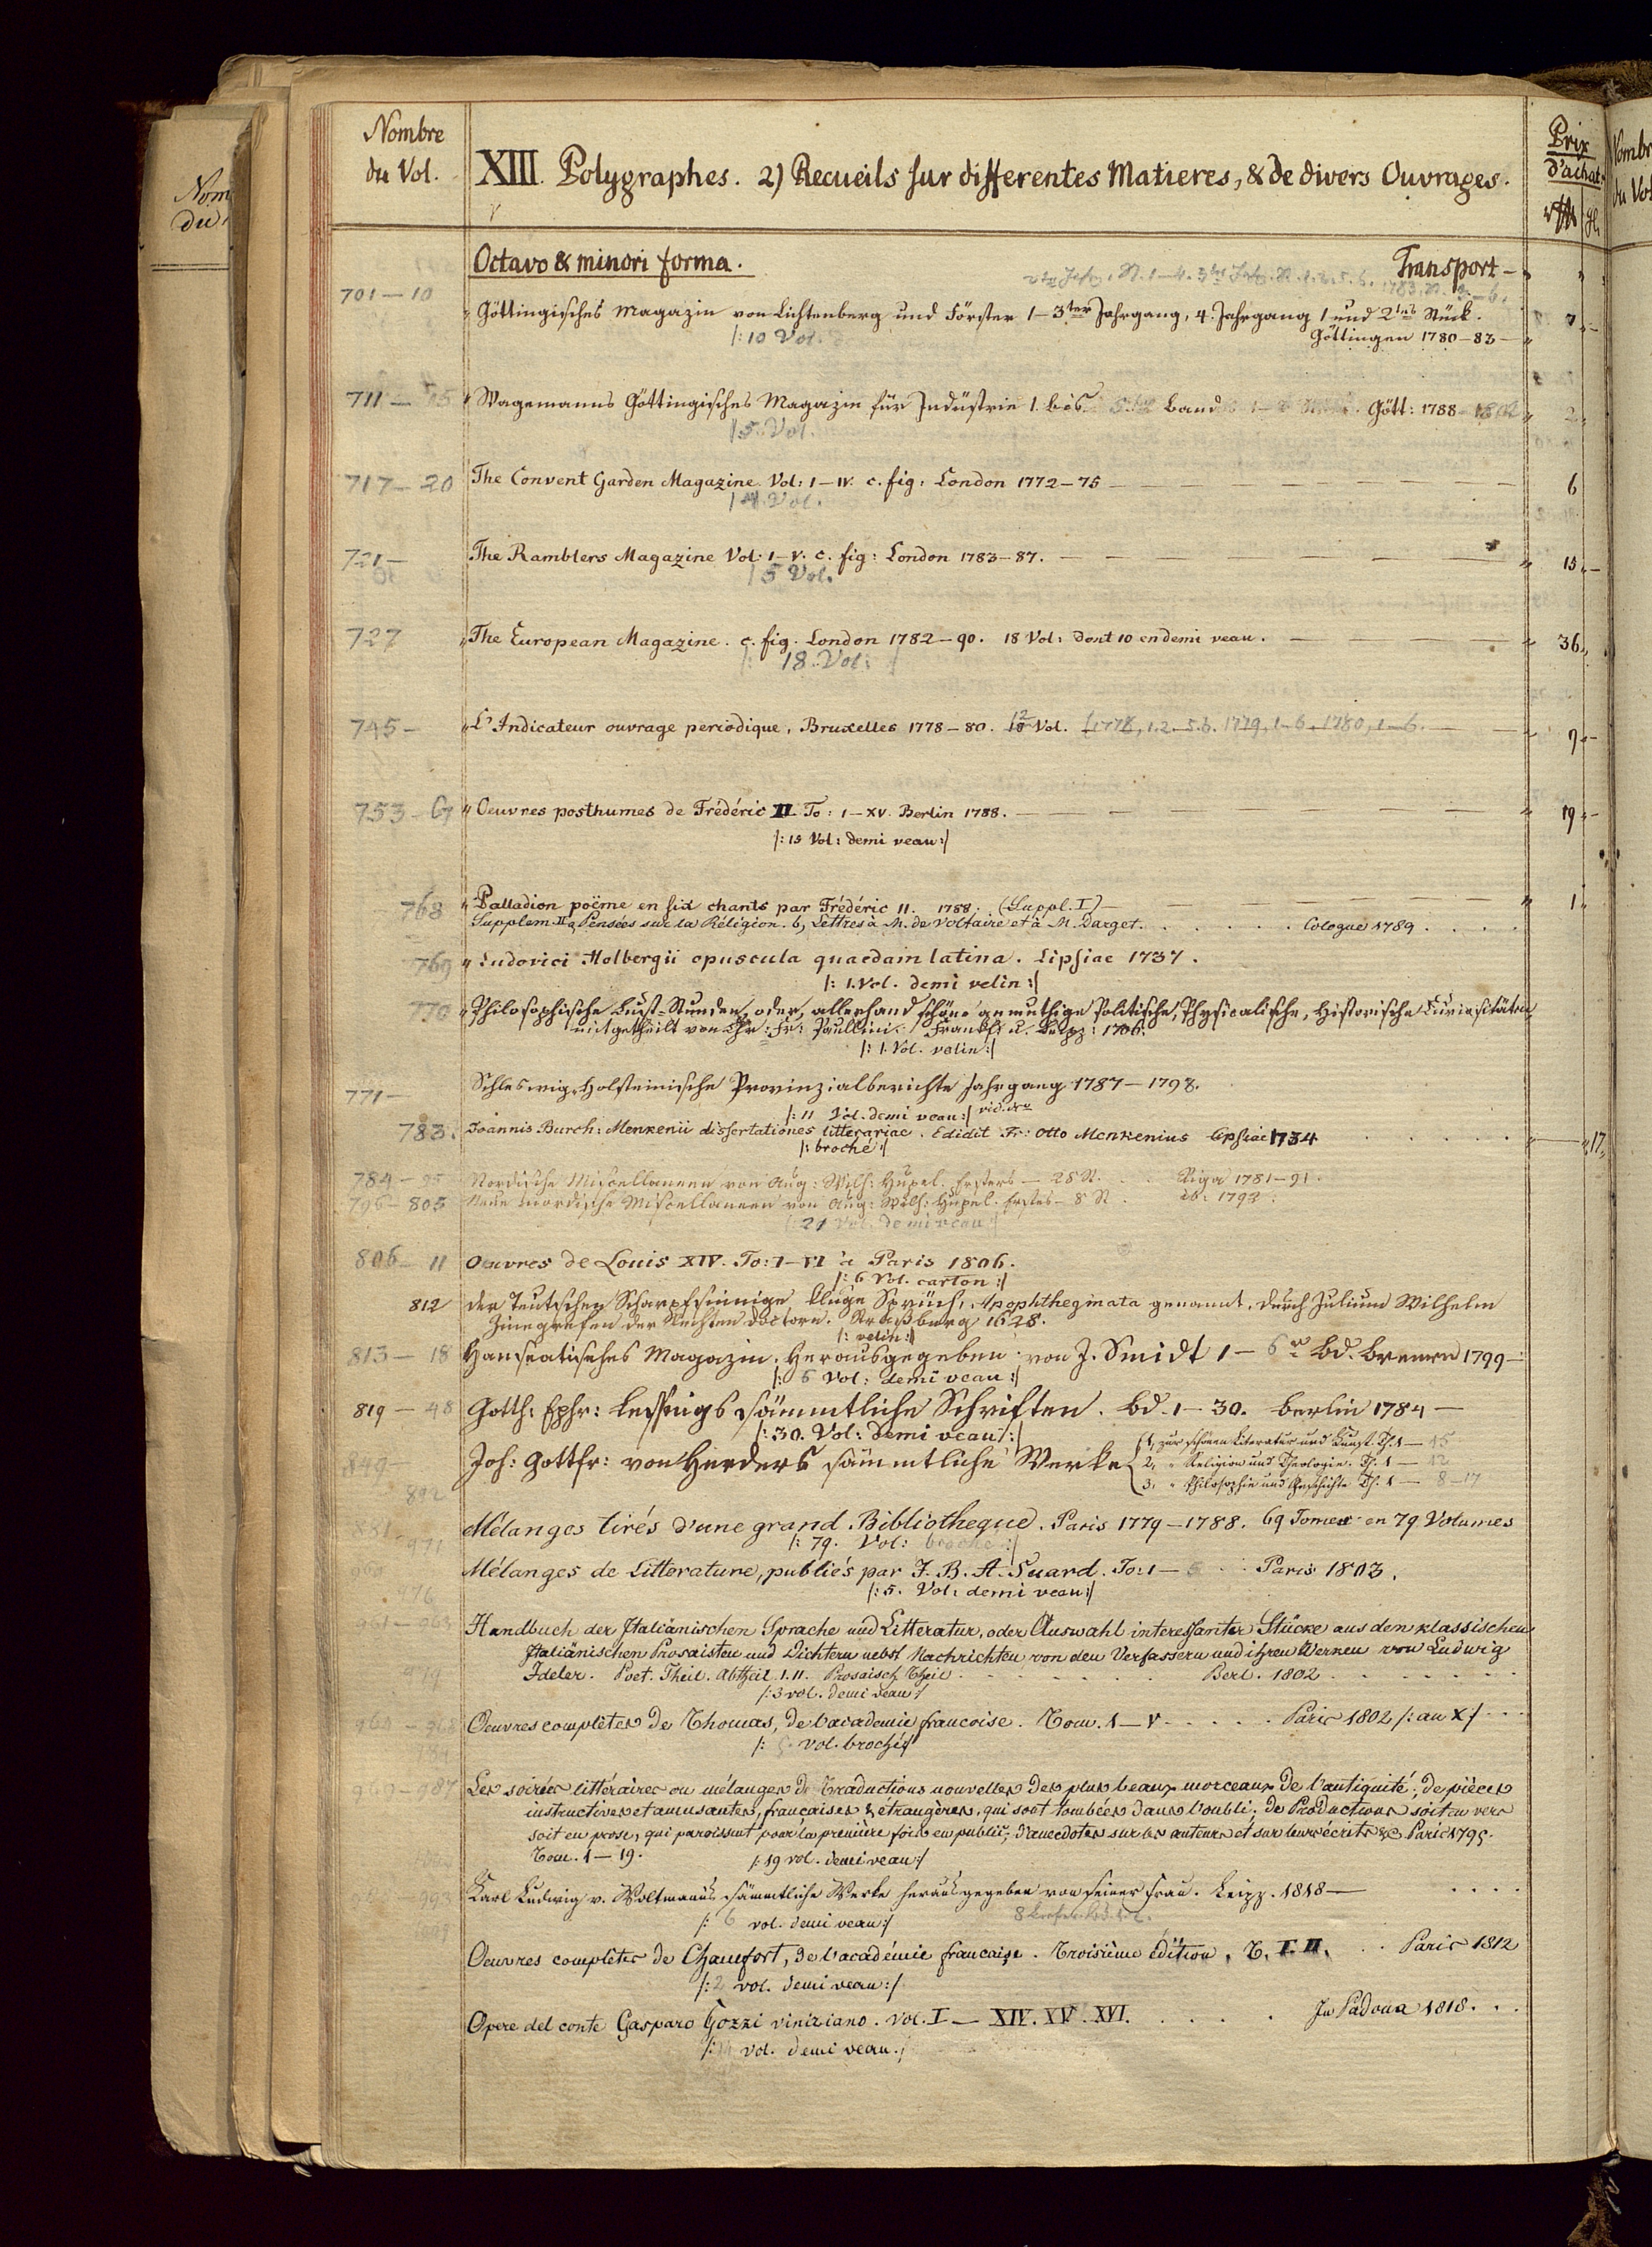 Nombre
du Vol.
XIII. Polygraphes. 2) Recueils sur differentes Matieres, & de divers Ouvrages.
Prix
d'achat.
Octavo & minori forma. Transport -
701 - 10
Göttingisches Magazin von Lichtenberg und Förster 1 - 3ter Jahrgang, 4. Jahrgang 1 und 2tes Stück.
/: 10 Vol. Göttingen 1780 - 83 - 7
711 - Wagemanns Göttingisches Magazin für Industrie 1. bis 5. Band Gött: 1788 - 1802 2
/ 5. Vol.
717 - 20 The Convent Garden Magazine. Vol: I - IV. c. fig: London 1772 - 75 6
/ 4. Vol.
721 - The Ramblers Magazine Vol: I - V. c. fig: London 1783 - 87. 15
/ 5 Vol.
727 The European Magazine. c. fig. London 1782 - 90. 18 Vol: dont 10 en demi veau. 36
/: 18. Vol: /
745 - L'Indicateur ouvrage periodique, Bruxelles 1778 - 80. 12 Vol. (1778, 1.2 - 5.6. 1779, 1 - 6 - 1780, 1 - 6. 9
753 - 67 Oeuvres posthumes de Frédéric II. To: I - XV. Berlin 1788. 19
/: 15 Vol: demi veau :/
768 Palladion poëme en six chants par Frédéric II. 1788. (Suppl. I) 1
Supplem. II a, Pensées sur la Réligion. b, Lettres à M. de Voltaire et à M. Darget. Cologne 1789
769 Ludovici Holbergii opuscula quaedam latina. Lipsiae 1737.
/: 1. Vol. demi velin :/
770 Philosophische Lust-Stunden, oder, allerhand schöne anmuthige Politische, Physicalische, Historische Curiositäten
mitgetheilt von Chr: Fr: Paullini. Frankf: u. Leipz: 1706.
/: 1. Vol. velin :/
771 - Schleswig-Holsteinische Provinzialberichte Jahrgang 1787 - 1798.
/: 11 Vol. demi veau :/
783. Joannis Burch: Menkenii dissertationes litterariae. Edidit Fr: Otto Menkenius Lipsiae 1734 17
/: broché :/
784 - 95 Nordische Miscellaneen von Aug: Wilh: Hupel. Erstes - 28 St. Riga 1781 - 91.
796 - 805 Neue nordische Miscellaneen von Aug: Wilh: Hupel. Erstes - 8 St. ib: 1792.
/: 21 Vol. demi veau :/
806 - 11 Oeuvres de Louis XIV. To: I - VI à Paris 1806.
/: 6 Vol. carton :/
812 Der Teutschen Scharpfsinnige kluge Sprüch, Apophthegmata genannt, durch Julium Wilhelm
Zinegrefen der Rechten Doctorn. Straßburg 1628.
/: velin :/
813 - 18 Hanseatisches Magazin. Herausgegeben von J. Smidt 1 - 6r Bd. Bremen 1799 -
/: 6 Vol: demi veau :/
819 - 48 Gotth: Ephr: Lessings sämmtliche Schriften. Bd. 1 - 30. Berlin 1784 -
/: 30. Vol: demi veau :/
849 - Joh: Gottfr: von Herders sämmtliche Werke
1, zur schönen Literatur und Kunst. Th. 1 - 15
2, " Religion und Theologie. Th. 1 - 12
3, " Philosophie und Geschichte Th. 1 - 8 - 17
892
Mélanges tirés d'une grand Bibliotheque. Paris 1779 - 1788. 69 Tomes en 79 Volumes
/: 79. Vol: broché :/
971
Mélanges de Litterature, publiés par J. B. A. Suard. To: 1 - 5 Paris 1803.
/: 5. Vol: demi veau :/
961 - 963 Handbuch der Italiänischen Sprache und Litteratur, oder Auswahl interessanter Stücke aus den klassischen
Italiänischen Prosaisten und Dichtern nebst Nachrichten von den Verfassern und ihren Werken von Ludwig
Ideler. Poet. Theil. Abtheil. I. II. Prosaisch Theil Berl. 1802
/: 3 vol. demi veau :/
964 - 968 Oeuvres complètes de Thomas, de l'academie francoise. Tom. 1 - V Paris 1802 /: an X :/
/: 5. vol. broché :/
969 - 987 Les soirées littéraires ou mélanges de Traductions nouvelles des plus beaux morceaux de l'antiquité; de pièces
instructives et amusantes, francaises & étrangères, qui sont tombées dans l'oubli; de Productions soit en vers
soit en prose, qui paroissent pour la première fois en public; d'anecdotes sur les auteurs et sur leurs écrits &c Paris 1795.
Tom. 1 - 19. /: 19 vol. demi veau :/
993 Karl Ludwig v. Woltmann's sämmtliche Werke herausgegeben von seiner Frau. Leipz. 1818 -
/: 6 vol. demi veau :/
Oeuvres complètes de Chamfort, de l'académie francaise. Troisième édition. T. I. II. Paris 1812
/: 2 vol. demi veau :/
Opere del conte Gasparo Gozzi viniziano. Vol. I - XIV. XV. XVI. In Padova 1818.
vol. demi veau.